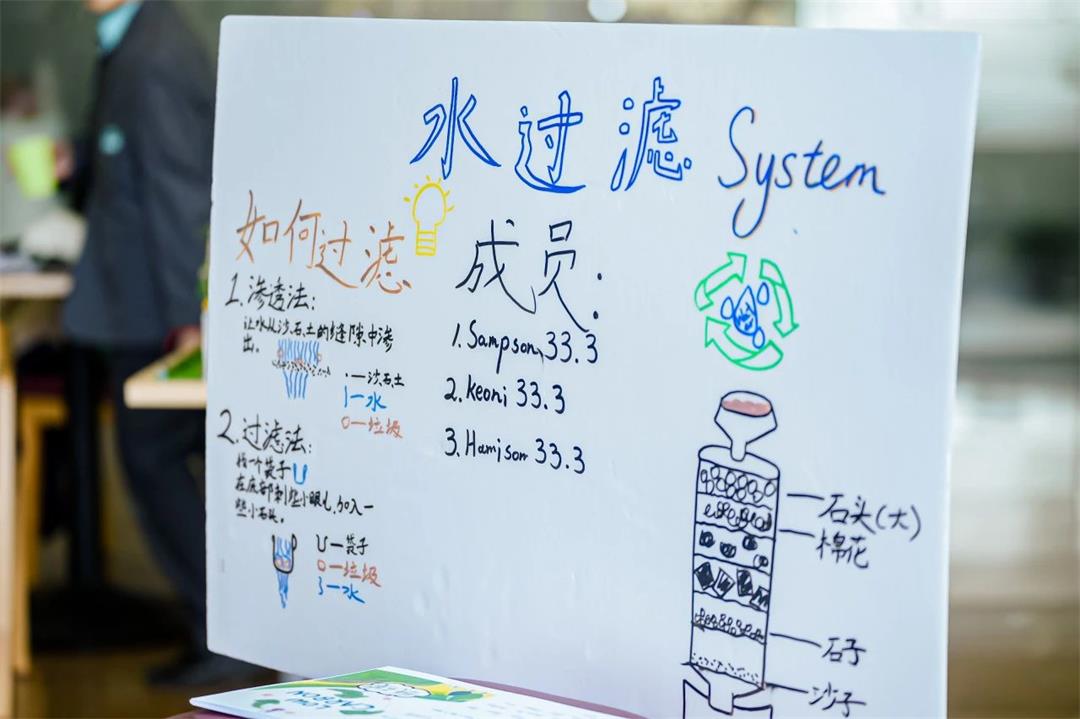 水过滤 System
如何过滤
1.渗透法:
让水从沙石土的缝隙中渗
出。
·—沙石土
|—水
0—垃圾
2.过滤法:
找一个袋子
在底部刺些小眼儿,加入一
些小石头。
U—袋子
0—垃圾
3—水
成员:
1.Sampson 33.3
2.Keoni 33.3
3.Hamison 33.3
石头(大)
棉花
石子
沙子